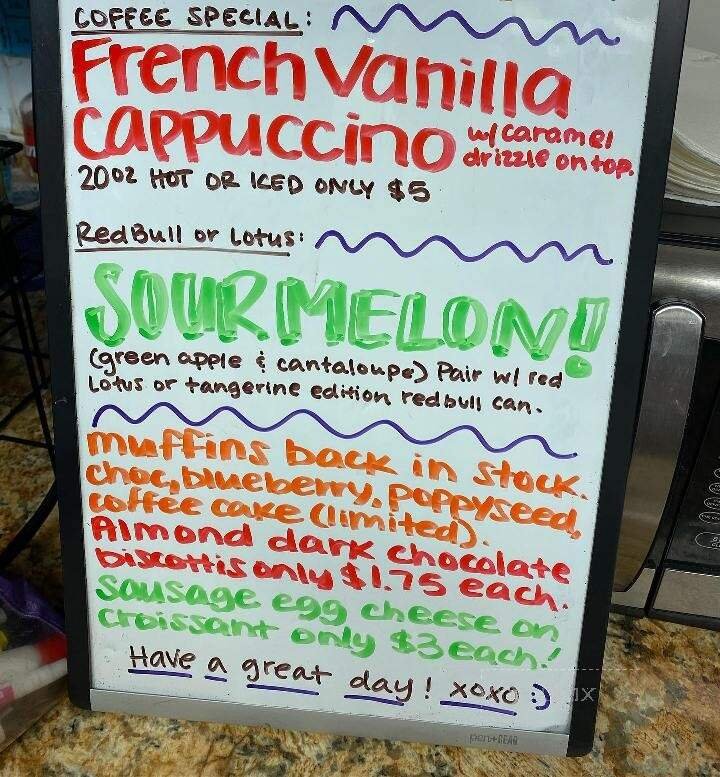 COFFEE SPECIAL:
French Vanilla
Cappuccino w/ caramel
drizzle on top.
20oz HOT OR ICED ONLY $5
RedBull or Lotus:
SOUR MELON!
(green apple & cantaloupe) Pair w/ red
Lotus or tangerine edition redbull can.
muffins back in stock.
choc, blueberry, poppyseed,
coffee cake (limited).
Almond dark chocolate
biscottis only $1.75 each.
Sausage egg cheese on
croissant only $3 each!
Have a great day! xoxo :)
pen+GEAR